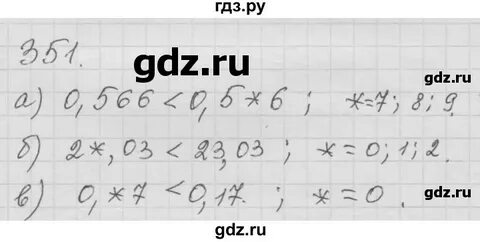 гдз.ру
351.
gdz.ru
а) 0,566 < 0,5*6 ; *=7; 8; 9.
gdz.ru
б) 2*,03 < 23,03 ; *=0; 1; 2.
в) 0,*7 < 0,17. ; *=0.
gdz.ru